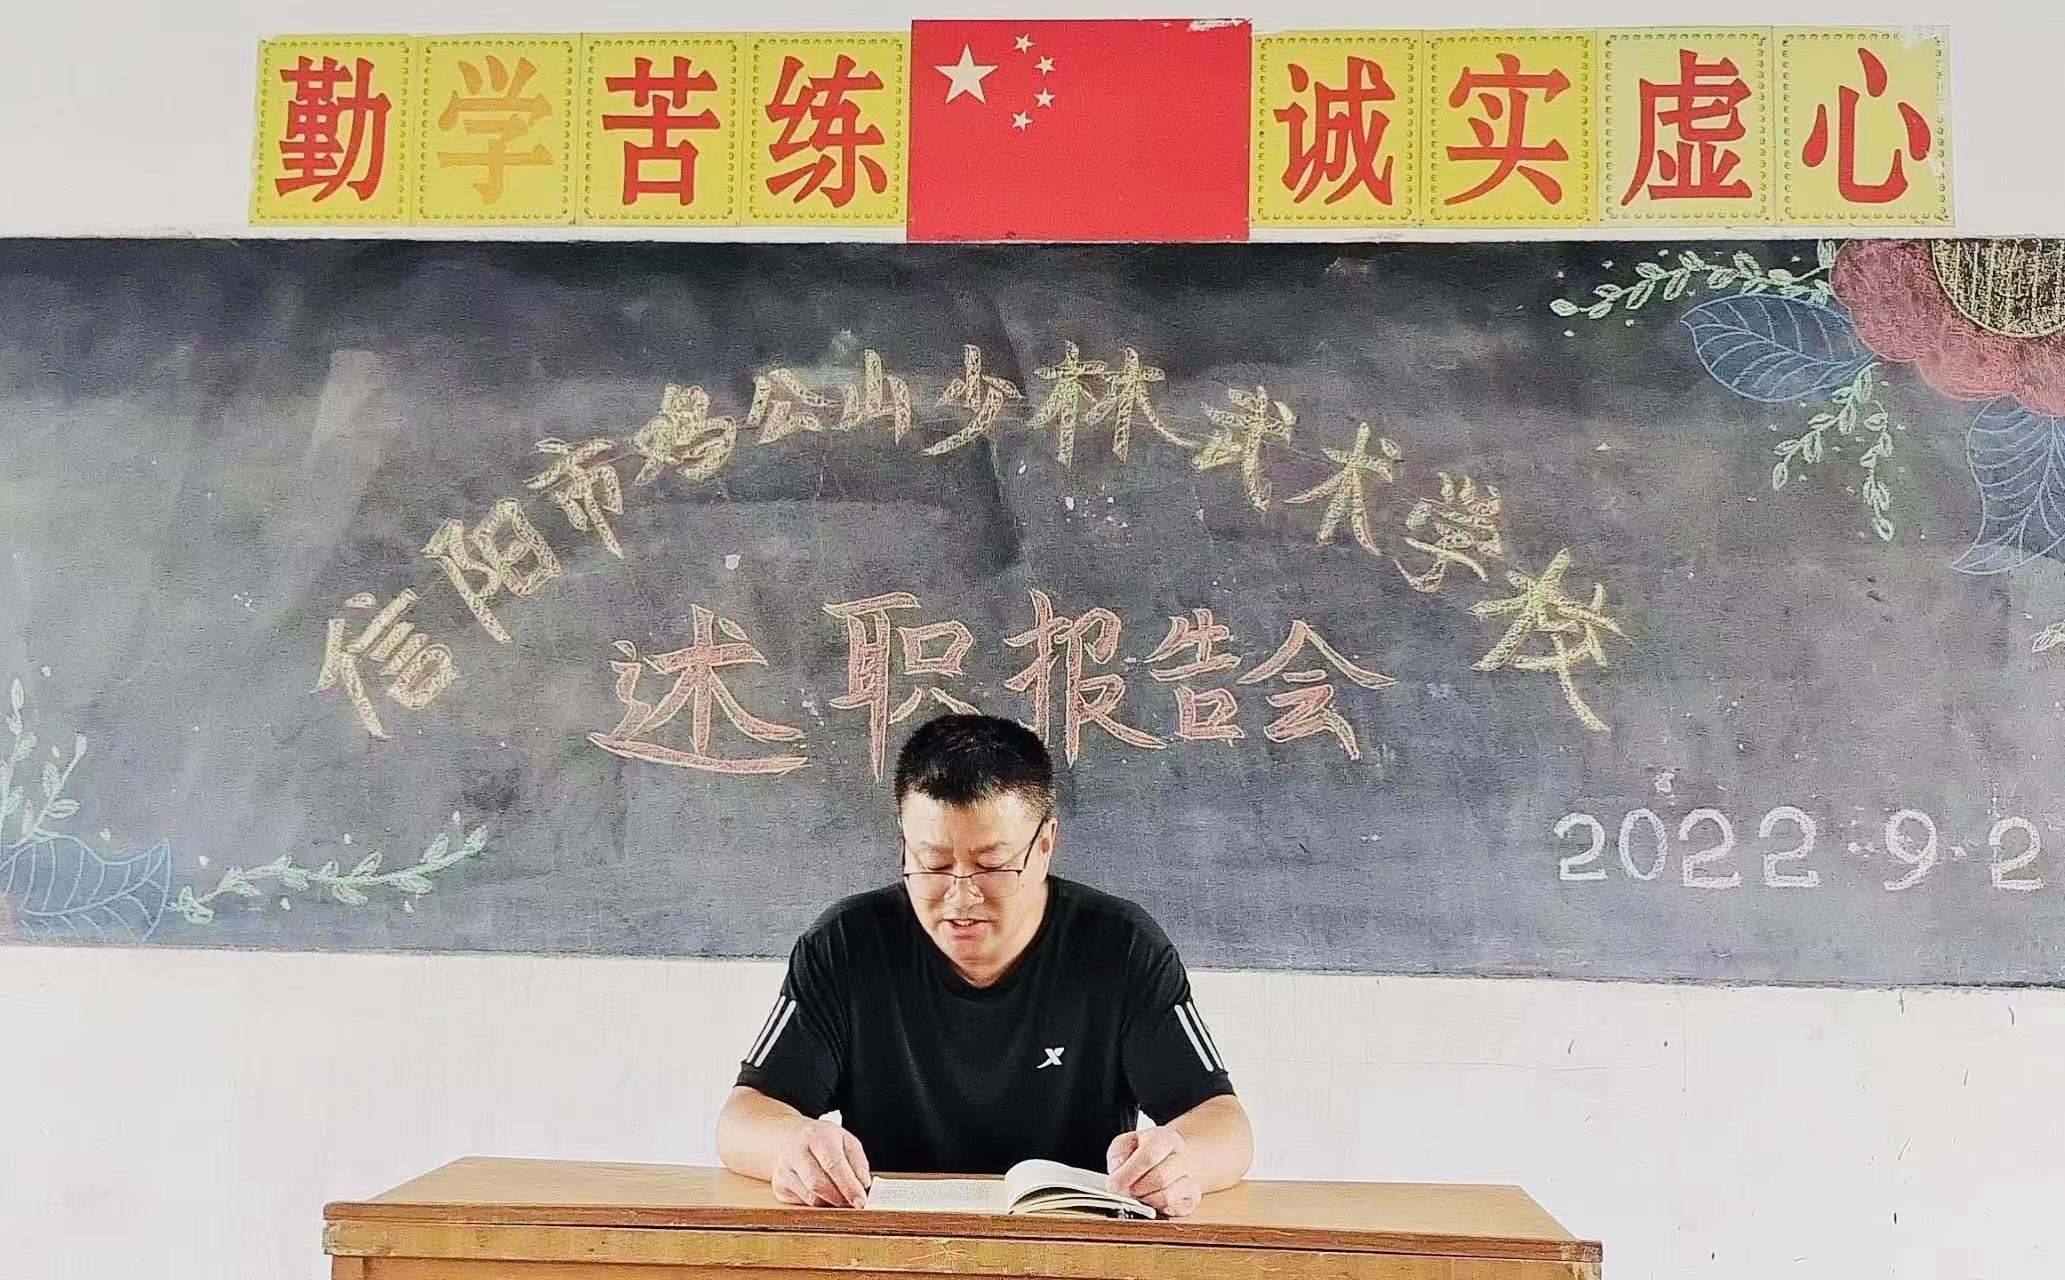 勤学苦练 诚实虚心
信阳市鸡公山少林武术学校
述职报告会
2022.9.2